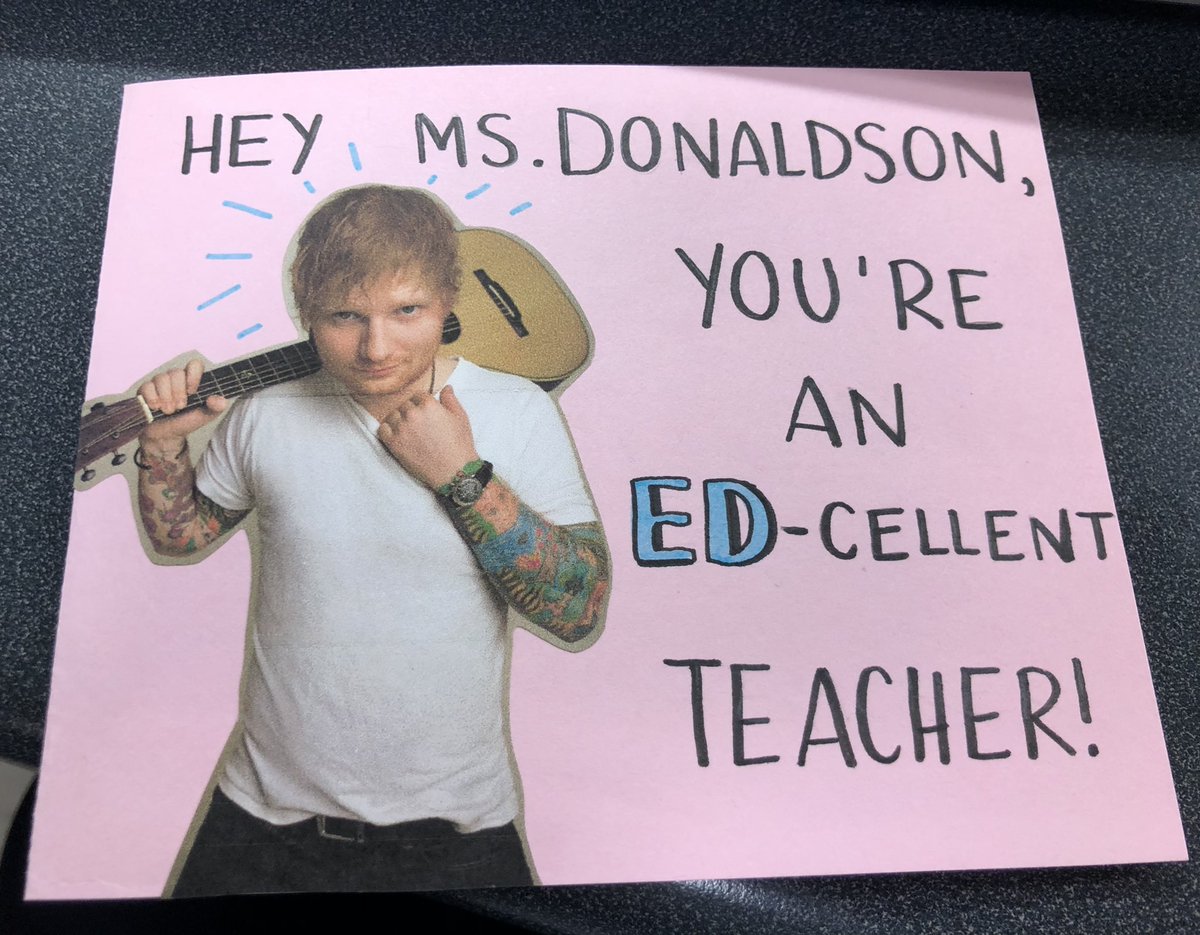 HEY MS. DONALDSON,
YOU'RE
AN
ED-CELLENT
TEACHER!